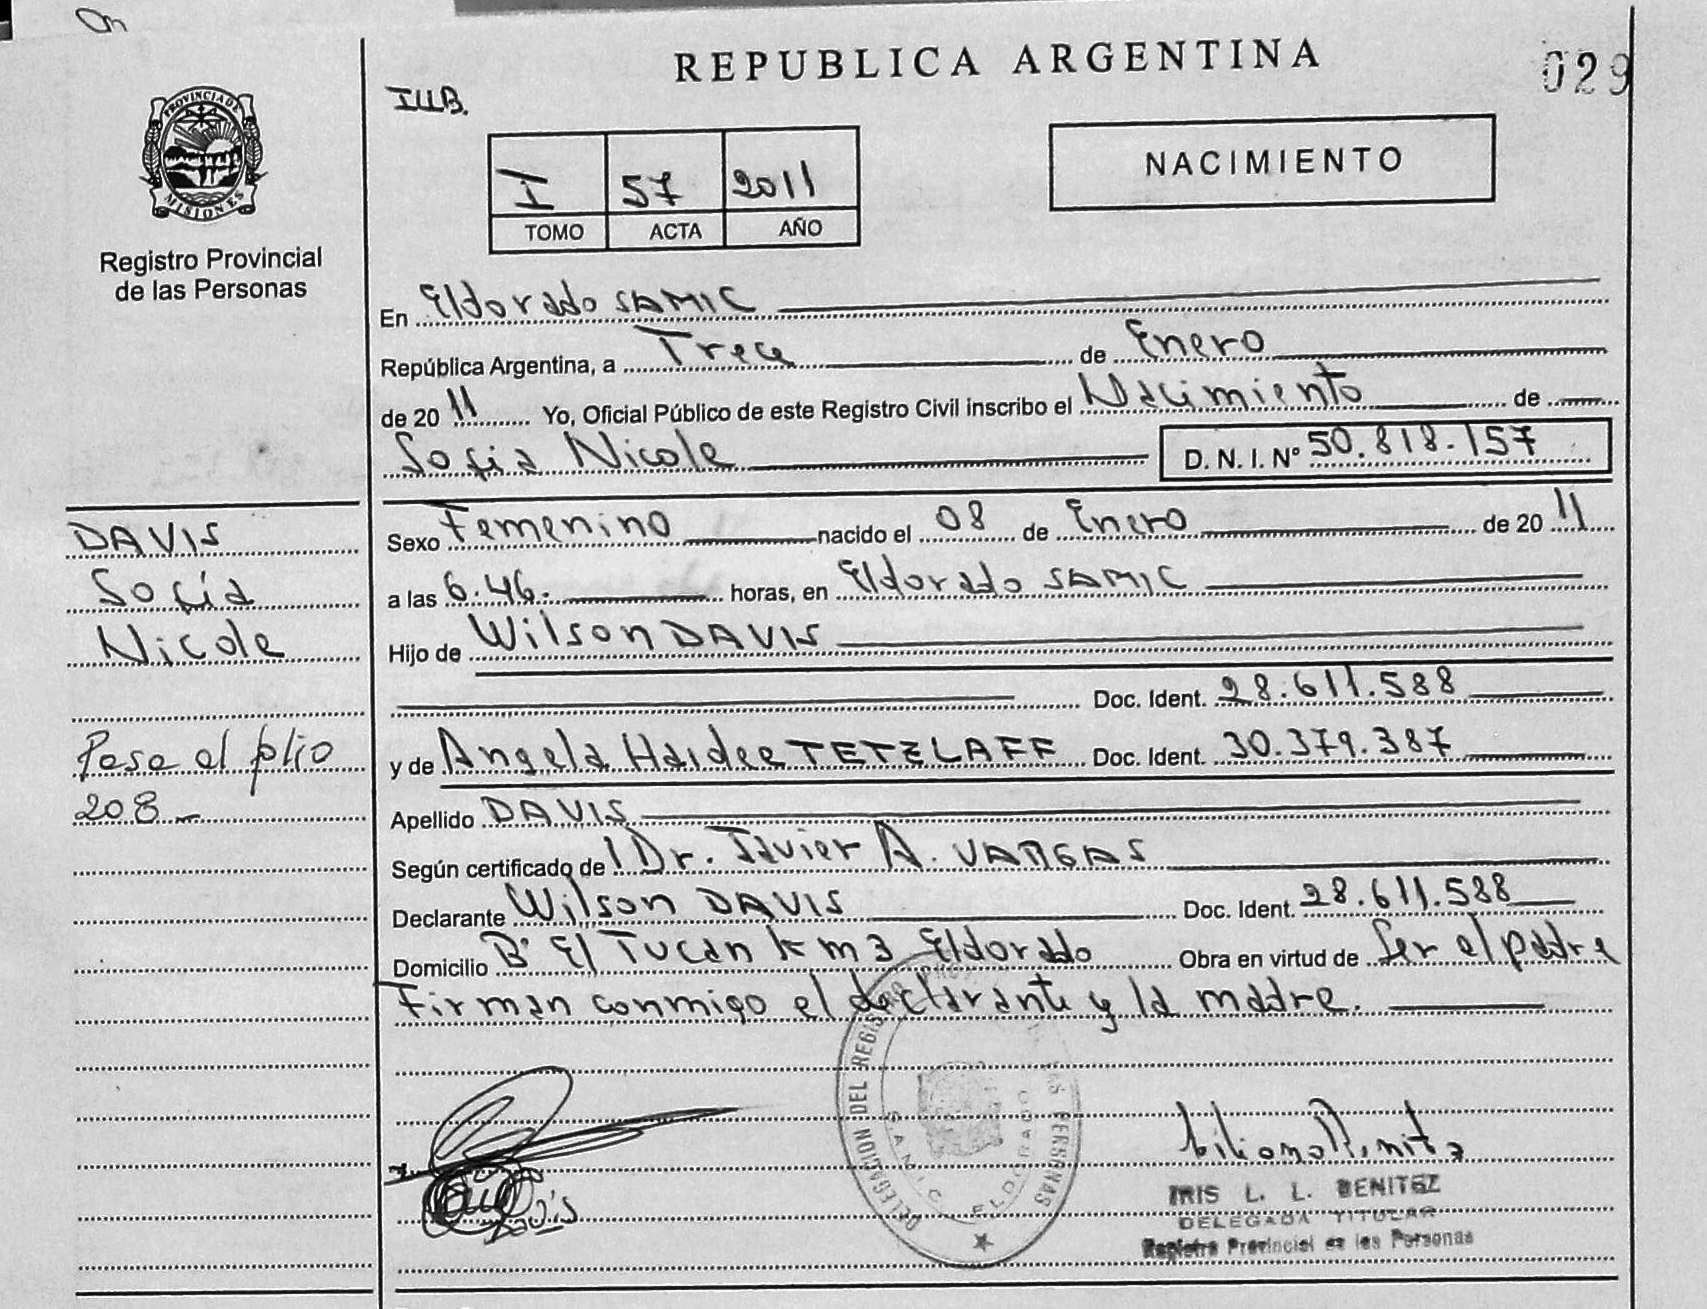 REPUBLICA ARGENTINA
029
PROVINCIA DE
MISIONES
Registro Provincial
de las Personas
I 57 2011
TOMO ACTA AÑO
NACIMIENTO
En Eldorado SAMIC
República Argentina, a Trece de Enero
de 20 11 Yo, Oficial Público de este Registro Civil inscribo el Nacimiento de
Sofía Nicole D. N. I. Nº 50.818.157
DAVIS
Sofía
Nicole
Pasa al folio
208
Sexo Femenino nacido el 08 de Enero de 20 11
a las 6.46. horas, en Eldorado SAMIC
Hijo de Wilson DAVIS
Doc. Ident. 28.611.588
y de Angela Haidee TETZLAFF Doc. Ident. 30.379.387
Apellido DAVIS
Según certificado de Dr. Javier A. VARGAS
Declarante Wilson DAVIS Doc. Ident. 28.611.588
Domicilio Bº El Tucan km 3 Eldorado Obra en virtud de Ser el padre
Firman conmigo el declarante y la madre.
DELEGACION DEL REGISTRO LAS PERSONAS
SAMIC ELDORADO
Davis
IRIS L. L. BENITEZ
DELEGADA TITULAR
Registro Provincial de las Personas